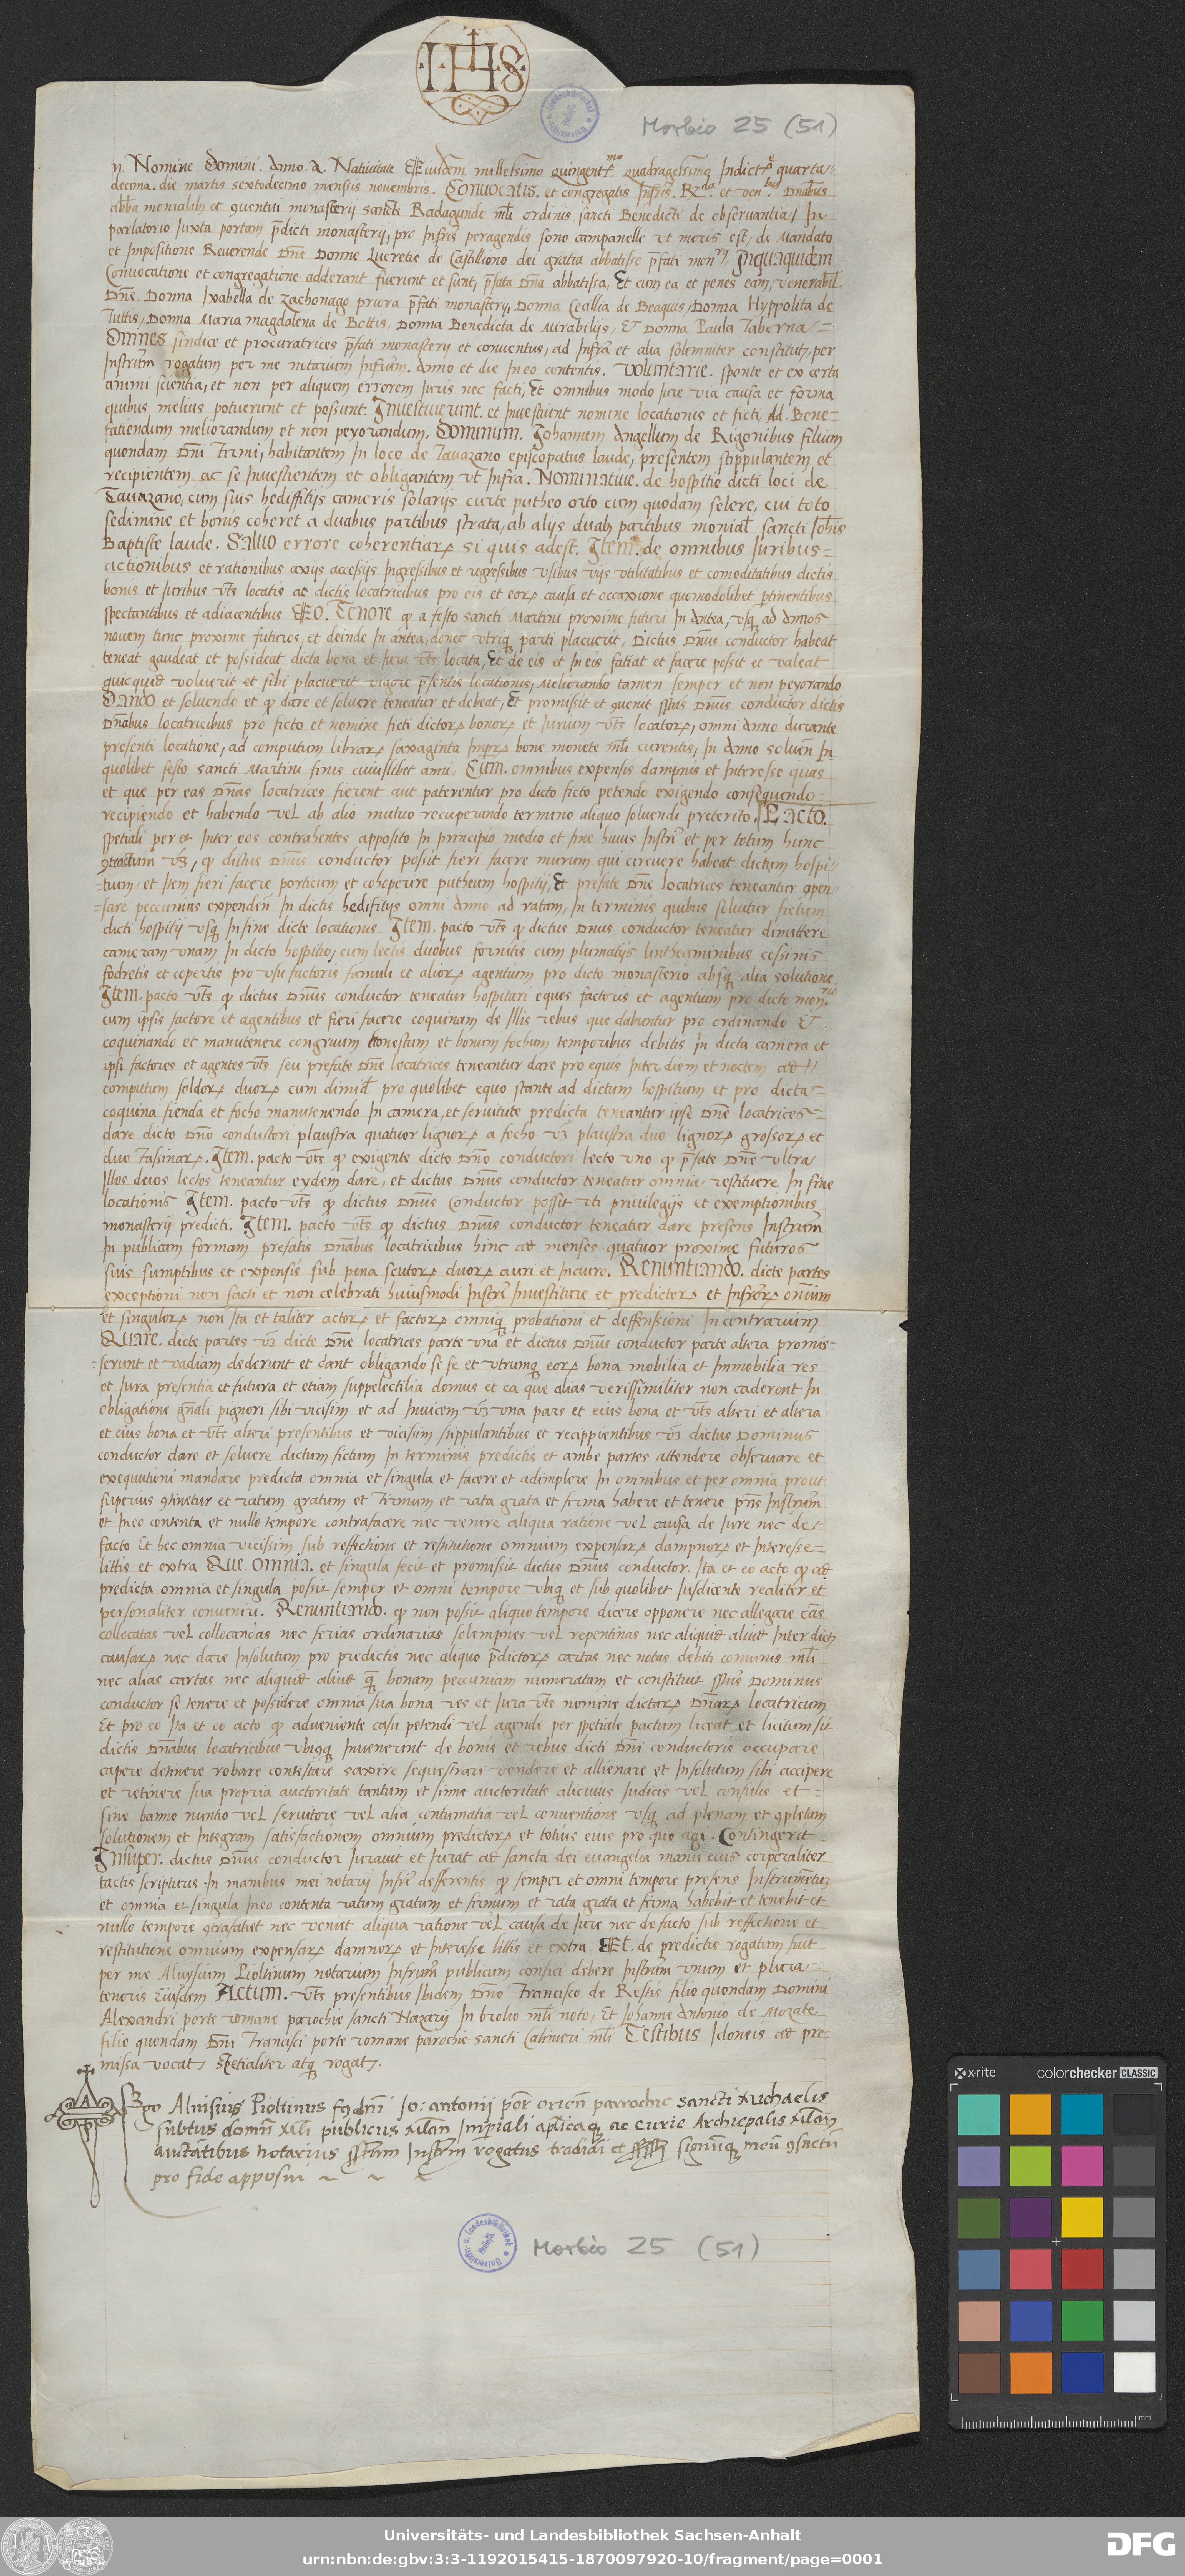 IHS
Morbio 25 (51)
In Nomine Domini. Anno. A. Nativitate Eiusdem millesimo quingent.mo quadragesimo Indict.e quarta
decima. die martis sextodecimo mensis novembris. Convocatis. et congregatis Infris. R.dis et ven.bus dnabus
abba monialib et conventui monasterij sancte Radagunde mli ordinis sancti Benedicti de observantia, In
parlatorio Iuxta portam pdicti monasterij, pro Infris peragendis sono campanelle ut moris est, de Mandato
et Impositione Reverende Dne Donne Lucretie de Castilliono dei gratia abbatisse pfati mon.rij, Inquaquidem
Convocatione et congregatione adderant fuerunt et sunt, pfata dna abbatissa, Et cum ea et penes eam, venerabil.
Dne. Donna Ixabella de Zachonago priora pfati monasterij, Donna Cecillia de Beaquis, Donna Hyppolita de
Tuttis, Donna Maria magdalena de Bottis, Donna Benedicta de Mirabilijs, Et Donna Paula Taberna,
Omnes sindice et procuratrices pfati monasterij et conventus, ad Infra et alia solemniter constitut, per
Instrum rogatum per me notarium Infrum. Anno et die In eo contentis. Voluntarie. sponte et ex certa
animi scientia, et non per aliquem errorem Iuris nec facti, Et omnibus modo Iure via causa et forma
quibus melius potuerunt et possunt. Investiverunt. et Investiunt nomine locationis et ficti, Ad. Bene-
fatiendum meliorandum et non peyorandum. Dominum. Johannem Angellum de Rigonibus filium
quondam Dni Firmi, habitantem In loco de Tavazano episcopatus laude, presentem stippulantem et
recipientem ac se Investientem et obligantem ut Infra. Nominative. de hospitio dicti loci de
Tavazano, cum suis hediffitijs cameris solarijs curte putheo orto cum quodam selere, cui toto
sedimine et bonis coheret a duabus partibus strata, ab alijs duab partibus monial sancti Johis
Baptiste laude. Salvo errore coherentiar si quis adest. Item. de omnibus Iuribus
actionibus et rationibus axijs accessijs Ingressibus et regressibus usibus vijs utilitatibus et comoditatibus dictis
bonis et Iuribus uts locatis ac dictis locatricibus pro eis et eor causa et occaxione quomodolibet ptinentibus
spectantibus et adiacentibus Eo. Tenore q a festo sancti Martini proxime futuri In Antea, usq ad Annos
novem tunc proxime futuros, et deinde In antea, donec utriq parti placuerit, Dictus Dnus conductor habeat
teneat gaudeat et possideat dicta bona et Iura uts locata, Et de eis et In eis fatiat et facere possit et valeat
quicquid voluerit et sibi placuerit vigore psentis locationis, Meliorando tamen semper et non peyorando
Dando et solvendo et q dare et solvere teneatur et debeat, Et promisit et convenit pfatus Dnus conductor dictis
Dnabus locatricibus pro ficto et nomine ficti dictor bonor et Iurium uts locator, omni Anno durante
presenti locatione, ad computum librar saxaginta Imper bone monete mli currentis, In Anno solven In
quolibet festo sancti Martini finis cuiuslibet anni, Cum. omnibus expensis dampnis et Interesse quas
et que per eas Dnas locatrices fierent aut paterentur pro dicto ficto petendo exigendo consequendo
recipiendo et habendo vel ab alio mutuo recuperando termino aliquo solvendi preterito. Eo Acto.
spetiali per et Inter eos contrahentes apposito In principio medio et fine huius Instri et per totum hunc
contractum uz, q dictus Dnus conductor possit fieri facere murum qui circuere habeat dictum hospi-
tium, et Item fieri facere porticum et cohoperire putheum hospitij, Et prefate Dne locatrices teneantur compen-
sare peccunias expenden In dictis hedifitijs omni Anno ad ratam, In terminis quibus solvitur fictum
dicti hospitij usq In fine dicte locationis. Item. pacto uts q dictus Dnus conductor teneatur dimittere
cameram unam In dicto hospitio, cum lectis duobus fornitis cum plumatijs lintheaminibus cossinis
fodretis et copertis pro usu factoris famuli et alior agentium pro dicto monasterio absq alia solutione
Item. pacto uts q dictus Dnus conductor teneatur hospitari equos factoris et agentium pro dicto mon.rio
cum ipsis factore et agentibus et fieri facere coquinam de Illis rebus que dabuntur pro ordinando Et
coquinando et manutenere congruum honestum et bonum fochum temporibus debitis In dicta camera et
ipsi factores et agentes uts seu prefate Dne locatrices teneantur dare pro equis Inter diem et noctem ad
computum soldor duor cum dimid pro quolibet equo stante ad dictum hospitium et pro dicta
coquina fienda et focho manutenendo In camera, et servitute predicta teneantur ipse Dne locatrices
dare dicto Dno conductori plaustra quatuor lignor a focho uz plaustra duo lignor grossor et
duo Fassinar. Item. pacto uts q exigente dicto Dno conductori lecto uno q pfate Dne ultra
Illos duos lectos teneantur eydem dare, et dictus Dnus conductor teneatur omnia restituere In fine
locationis Item. pacto uts q dictus Dnus Conductor possit uti privilegijs et exemptionibus
monasterij predicti. Item. pacto uts q dictus Dnus conductor teneatur dare presens Instrum
In publicam formam prefatis Dnabus locatricibus hinc ad menses quatuor proxime futuros
suis sumptibus et expensis sub pena scutor duor auri et In auro. Renuntiando. dicte partes
exceptioni non facti et non celebrati huiusmodi Instri Investiture et predictor et Infror omnium
et singulor non Ita et taliter actor et factor omniq probationi et deffensioni In contrarium
Quare. dicte partes uz dicte Dne locatrices parte una et dictus Dnus conductor parte altera promis-
serunt et vadiam dederunt et dant obligando se se et utrumq eor bona mobilia et Immobilia res
et Iura presentia et futura et etiam suppelectilia domus et ea que alias verissimiliter non caderent In
obligatione gnali pignori sibi vicisim et ad Invicem uz una pars et eius bona et uts alteri et altera
et eius bona et uts alteri presentibus et vicisim stippulantibus et recippientibus uz dictus Dominus
conductor dare et solvere dictum fictum In terminis predictis et ambe partes attendere observare et
exequutioni mandare predicta omnia et singula et facere et adimplere In omnibus et per omnia prout
superius continetur et ratum gratum et Firmum et rata grata et firma habere et tenere pns Instrum
et In eo contenta et nullo tempore contrafacere nec venire aliqua ratione vel causa de Iure nec de
facto Et hec omnia vicissim sub reffectione et restitutione omnium expensar dampnor et Interesse
littis et extra Que. omnia. et singula fecit et promissit dictus Dnus conductor. Ita et eo acto q ad
predicta omnia et singula possit semper et omni tempore ubiq et sub quolibet Iusdicente realiter et
personaliter conveniri. Renuntiando. q non possit aliquo tempore dicere opponere nec allegare cas
collocatas vel collocandas nec ferias ordinarias solempnes vel repentinas nec aliquid aliud Inter dict
causar nec dare Insolutum pro predictis nec aliquo pdictor cartas nec notas debiti comunis mli
nec alias cartas nec aliquid aliud qm bonam peccuniam numeratam et constituit pfatus Dominus
conductor se tenere et possidere omnia sua bona res et Iura uts nomine dictar Dnar locatricum
Et pro eo Ita et eo acto q adveniente casu petendi vel agendi per spetiale pactum liceat et licitum sit
dictis Dnabus locatricibus ubicumq Invenerint de bonis et rebus dicti Dni conductoris occupare
capere detinere robare contestare saxire sequestrari vendere et allienare et Insolutum sibi accipere
et retinere sua propria auctoritate tantum et sinne auctoritate alicuius Iudicis vel consulis et
sine banno nuntio vel servitore vel alia contumatia vel conventione usq ad plenam et completam
solutionem et Integram satisfactionem omnium predictor et totius eius pro quo agi. Contingerit
Insuper. dictus Dnus conductor Iuravit et Iurat ad sancta dei evangelia manu eius corporaliter
tactis scripturis. In manibus mei notarij Infri defferentis q semper et omni tempore presens Instrumentum
et omnia et singula In eo contenta ratum gratum et firmum et rata grata et firma habebit et tenebit et
nullo tempore contrafatiet nec veniet aliqua ratione vel causa de Iure nec de facto sub reffectione et
restitutione omnium expensar damnor et Interesse littis et extra Et. de predictis rogatum fuit
per me Aluysium Pioltinum notarium Infrum publicum confici debere Instrum unum et plura
tenoris Eiusdem Actum. uts presentibus Ibidem Dno Francisco de Restis filio quondam Domini
Alexandri porte romane parochie sancti Nazarij In brolio mli noto, Et Johanne Antonio de Mozate
filio quondam Dni Francisci porte romane parochie sancti Calimeri mli Testibus Idoneis ad pre-
missa vocat, spetialiter atq rogat.
Ego Aluisius Pioltinus fq dni Jo: antonij por orien parrochie sancti Michaelis
subtus domum Mli publicus Mlan Imperiali aplicaq ac curie Archiepalis Mlan
auctatibus notarius pstum Instrum rogatus tradidi et signumq meu consuetu
pro fide apposui
Morbio 25 (51)
Universitäts- und Landesbibliothek Sachsen-Anhalt
urn:nbn:de:gbv:3:3-1192015415-1870097920-10/fragment/page=0001
DFG
x-rite colorchecker CLASSIC
mm